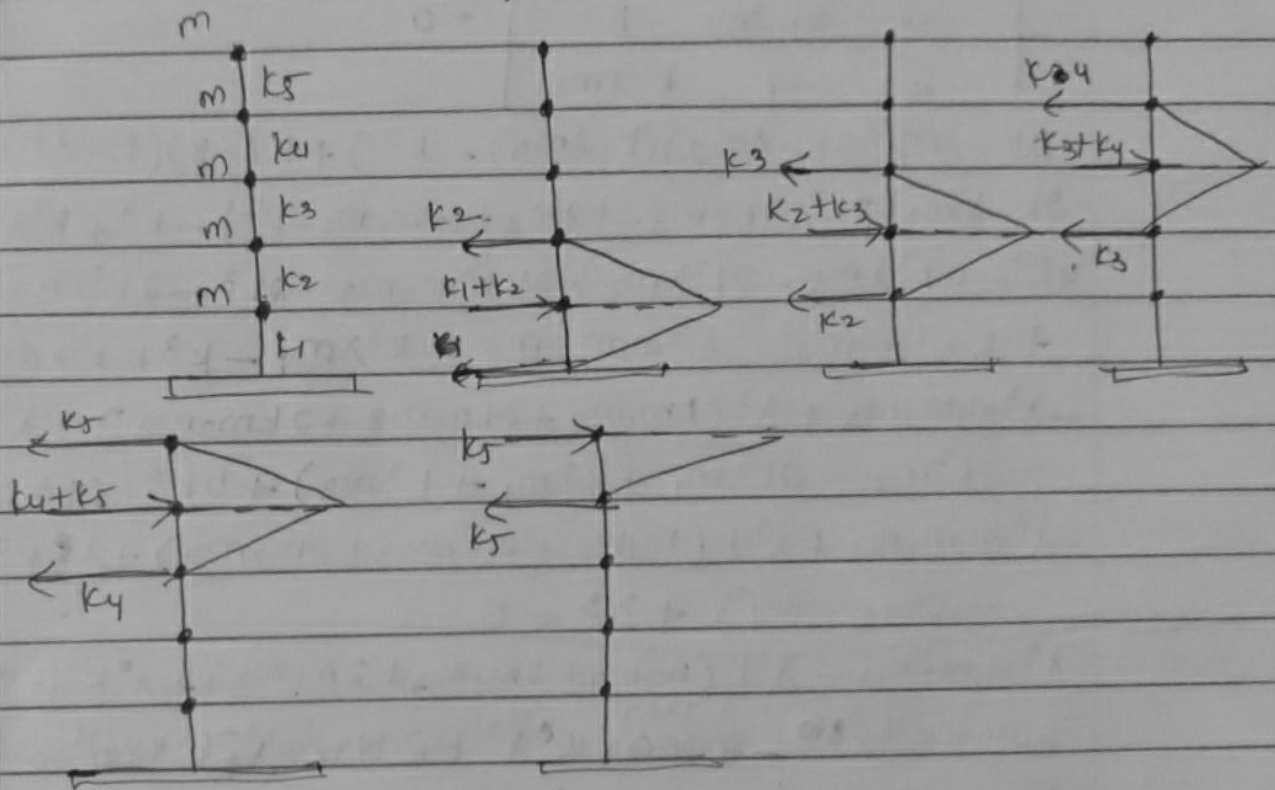 m
m K5
m K4
m K3
m K2
K1
K2
K1+K2
K3
K2+K3
K2
K4
K3+K4
K3
K5
K4+K5
K4
K5
K5